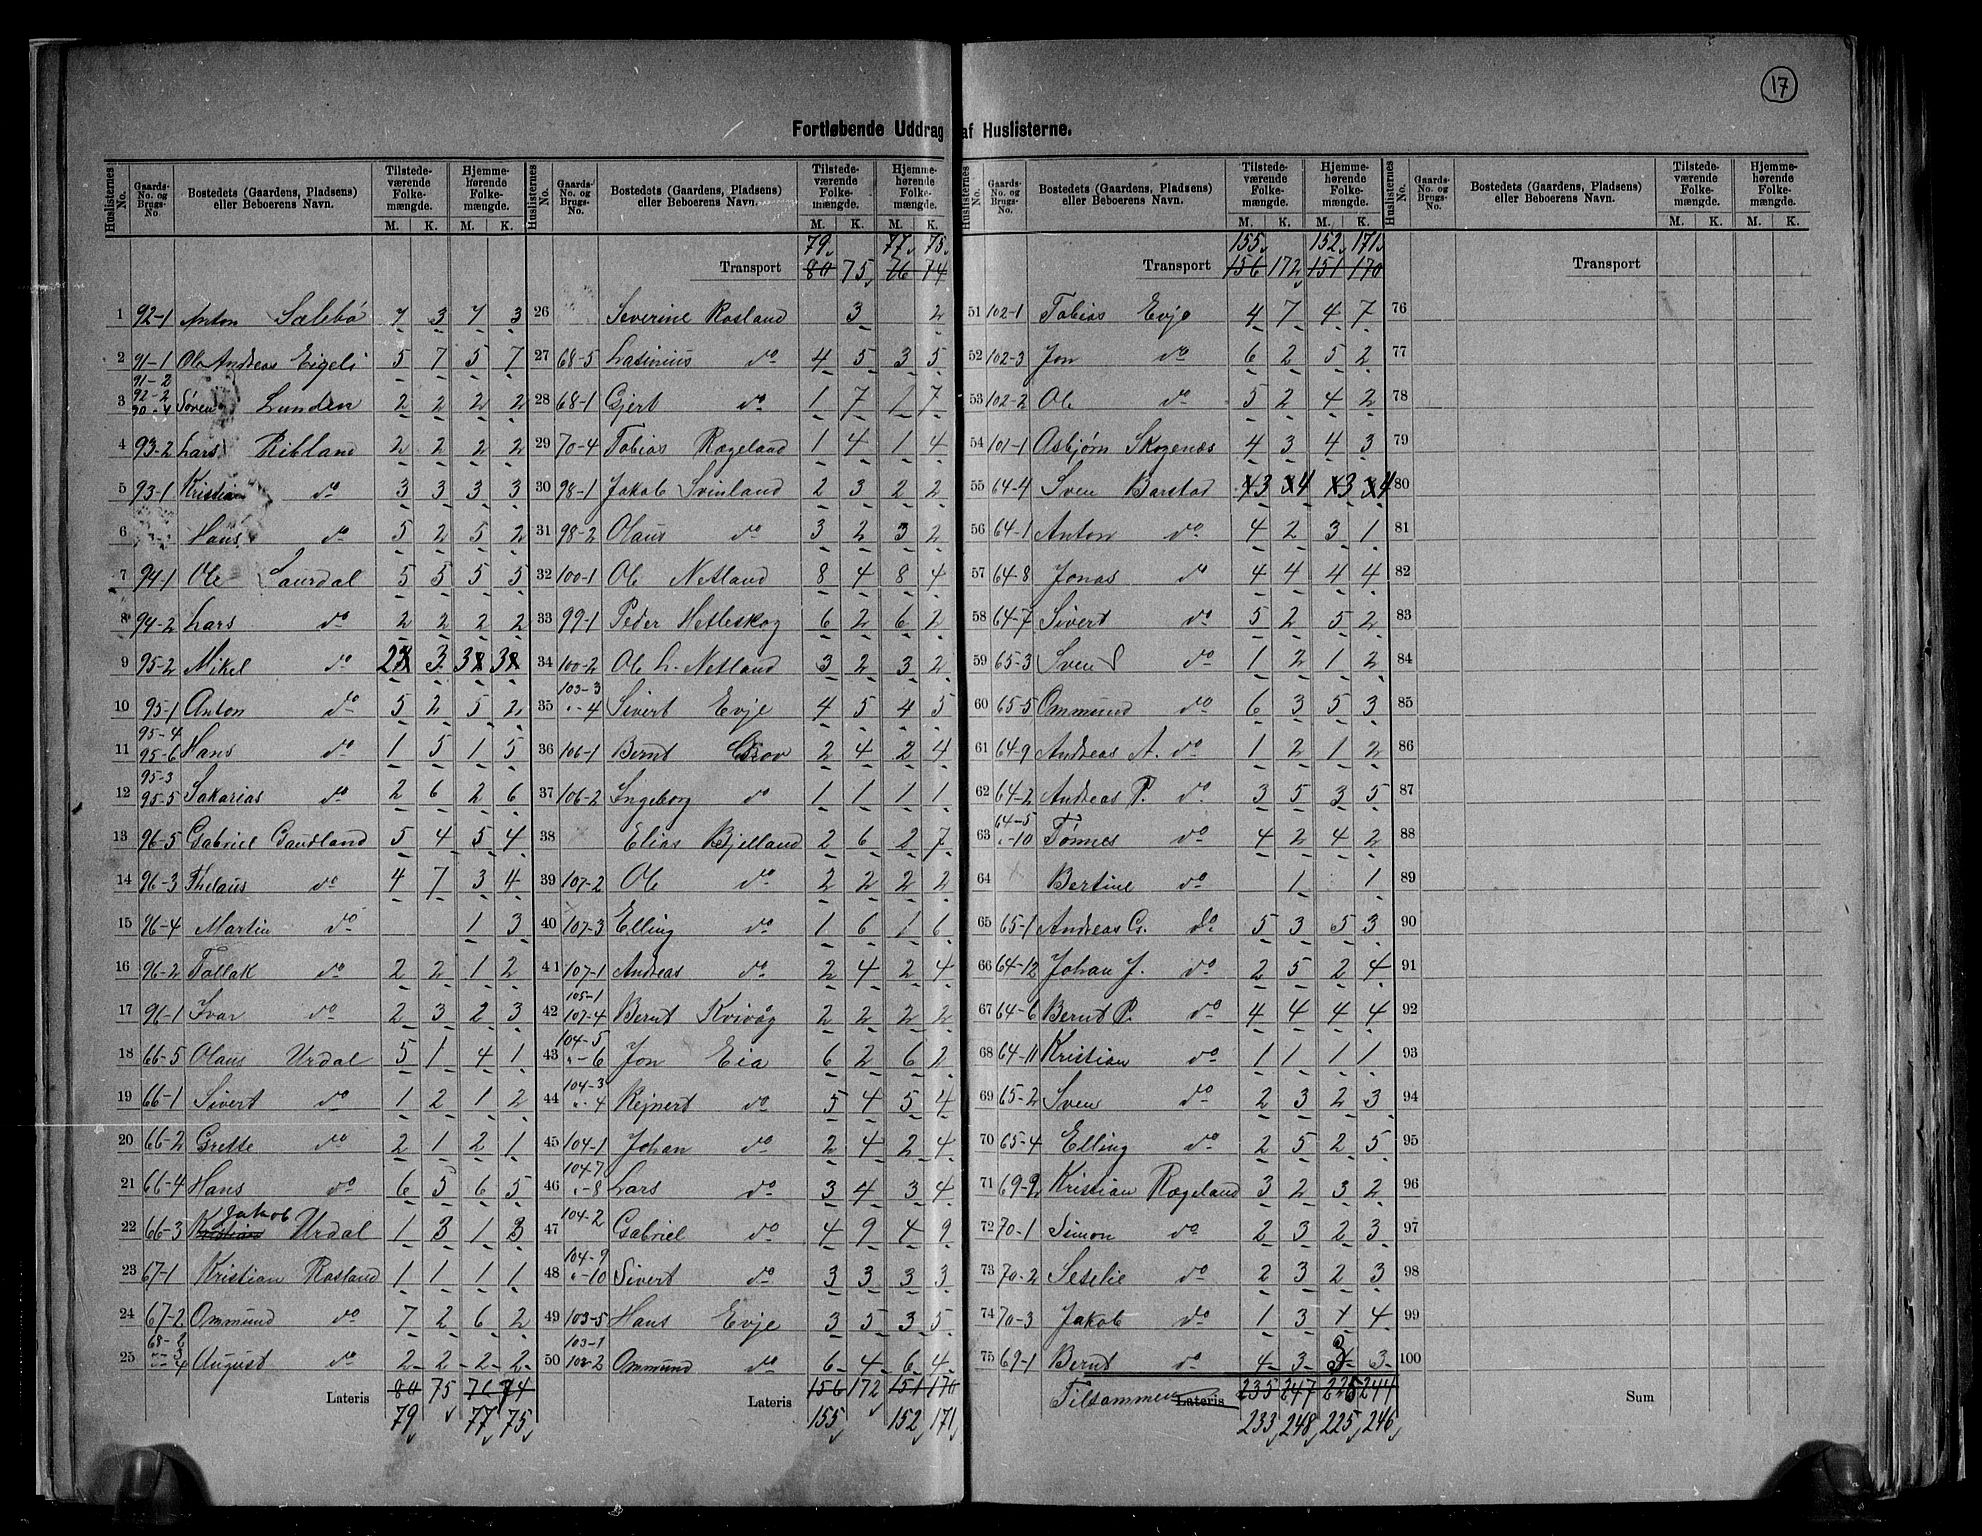 17
Fortløbende Uddrag af Huslisterne.
Huslisternes No. Gaards-No. og Brugs-No. Bostedets (Gaardens, Pladsens) eller Beboerens Navn. Tilstedeværende Folkemængde. M. K. Hjemmehørende Folkemængde. M. K.
1 92-1 Anton Sælebø 7 3 7 3
2 91-1 Ole Andreas Eigeli 5 7 5 7
3 91-2 92-2 90-4 Søren Lunden 2 2 2 2
4 93-2 Lars Ribland 2 2 2 2
5 93-1 Kristian do 3 3 3 3
6 Hans do 5 2 5 2
7 94-1 Ole Laurdal 5 5 5 5
8 94-2 Lars do 2 2 2 2
9 95-2 Mikel do 2 3 3 3
10 95-1 Anton do 5 2 5 2
11 95-4 95-6 Hans do 1 5 1 5
12 95-3 95-5 Sakarias do 2 6 2 6
13 96-5 Gabriel Gaudland 5 4 5 4
14 96-3 Thelaus do 4 7 3 4
15 96-4 Martin do 1 3
16 96-2 Tollak do 2 2 1 2
17 96-1 Ivar do 2 3 2 3
18 66-5 Olaus Urdal 5 1 4 1
19 66-1 Sivert do 1 2 1 2
20 66-2 Grette do 2 1 2 1
21 66-4 Hans do 6 5 6 5
22 66-3 Kristian Jakob Urdal 1 3 1 3
23 67-1 Kristian Rosland 1 1 1 1
24 67-2 Ommund do 7 2 6 2
25 68-2 "-3 "-4 August do 2 2 2 2
Lateris 80 75 76 74
79 77 75
Huslisternes No. Gaards-No. og Brugs-No. Bostedets (Gaardens, Pladsens) eller Beboerens Navn. Tilstedeværende Folkemængde. M. K. Hjemmehørende Folkemængde. M. K.
79 77 75
Transport 80 75 76 74
26 Severine Rosland 3 2
27 68-5 Lasinius do 4 5 3 5
28 68-1 Gjert do 1 7 1 7
29 70-4 Tobias Rægeland 1 4 1 4
30 98-1 Jakob Svinland 2 3 2 2
31 98-2 Olaus do 3 2 3 2
32 100-1 Ole Netland 8 4 8 4
33 99-1 Peder Hetleskog 6 2 6 2
34 100-2 Ole L. Netland 3 2 3 2
35 103-3 "-4 Sivert Evje 4 5 4 5
36 106-1 Bernt Skov 2 4 2 4
37 106-2 Ingeborg do 1 1 1 1
38 Elias Bjelland 2 6 2 7
39 107-2 Ole do 2 2 2 2
40 107-3 Elling do 1 6 1 6
41 107-1 Andreas do 2 4 2 4
42 105-1 107-4 Bernt Kvivåg 2 2 2 2
43 104-5 "-6 Jon Eia 6 2 6 2
44 104-3 "-4 Rejnert do 5 4 5 4
45 104-1 Johan do 2 4 2 4
46 104-7 "-8 Lars do 3 4 3 4
47 104-2 Gabriel do 4 9 4 9
48 104-9 "-10 Sivert do 3 3 3 3
49 103-5 Hans Evje 3 5 3 5
50 103-1 102-2 Ommund do 6 4 6 4
Lateris 156 172 151 170
155 152 171
Huslisternes No. Gaards-No. og Brugs-No. Bostedets (Gaardens, Pladsens) eller Beboerens Navn. Tilstedeværende Folkemængde. M. K. Hjemmehørende Folkemængde. M. K.
155 152 171
Transport 156 172 151 170
51 102-1 Tobias Evje 4 7 4 7
52 102-3 Jon do 6 2 5 2
53 102-2 Ole do 5 2 4 2
54 101-1 Asbjørn Skogenæs 4 3 4 3
55 64-4 Sven Barstad 3 4 3 4
56 64-1 Anton do 4 2 3 1
57 64-8 Jonas do 4 4 4 4
58 64-7 Sivert do 5 2 5 2
59 65-3 Sven S do 1 2 1 2
60 65-5 Ommund do 6 3 5 3
61 64-9 Andreas A. do 1 2 1 2
62 64-2 Andreas P. do 3 5 3 5
63 64-5 "-10 Tønnes do 4 2 4 2
64 Bertine do 1 1
65 65-1 Andreas G. do 5 3 5 3
66 64-12 Johan J. do 2 5 2 4
67 64-6 Bernt P. do 4 4 4 4
68 64-11 Kristian do 1 1 1 1
69 65-2 Sven do 2 3 2 3
70 65-4 Elling do 2 5 2 5
71 69-2 Kristian Rægeland 3 2 3 2
72 70-1 Simon do 2 3 2 3
73 70-2 Seselie do 2 3 2 3
74 70-3 Jakob do 1 3 1 4
75 69-1 Bernt do 4 3 3 3
Tilsammen Lateris 235 247 226 244
233 248 225 246
Huslisternes No. Gaards-No. og Brugs-No. Bostedets (Gaardens, Pladsens) eller Beboerens Navn. Tilstedeværende Folkemængde. M. K. Hjemmehørende Folkemængde. M. K.
Transport
76
77
78
79
80
81
82
83
84
85
86
87
88
89
90
91
92
93
94
95
96
97
98
99
100
Sum